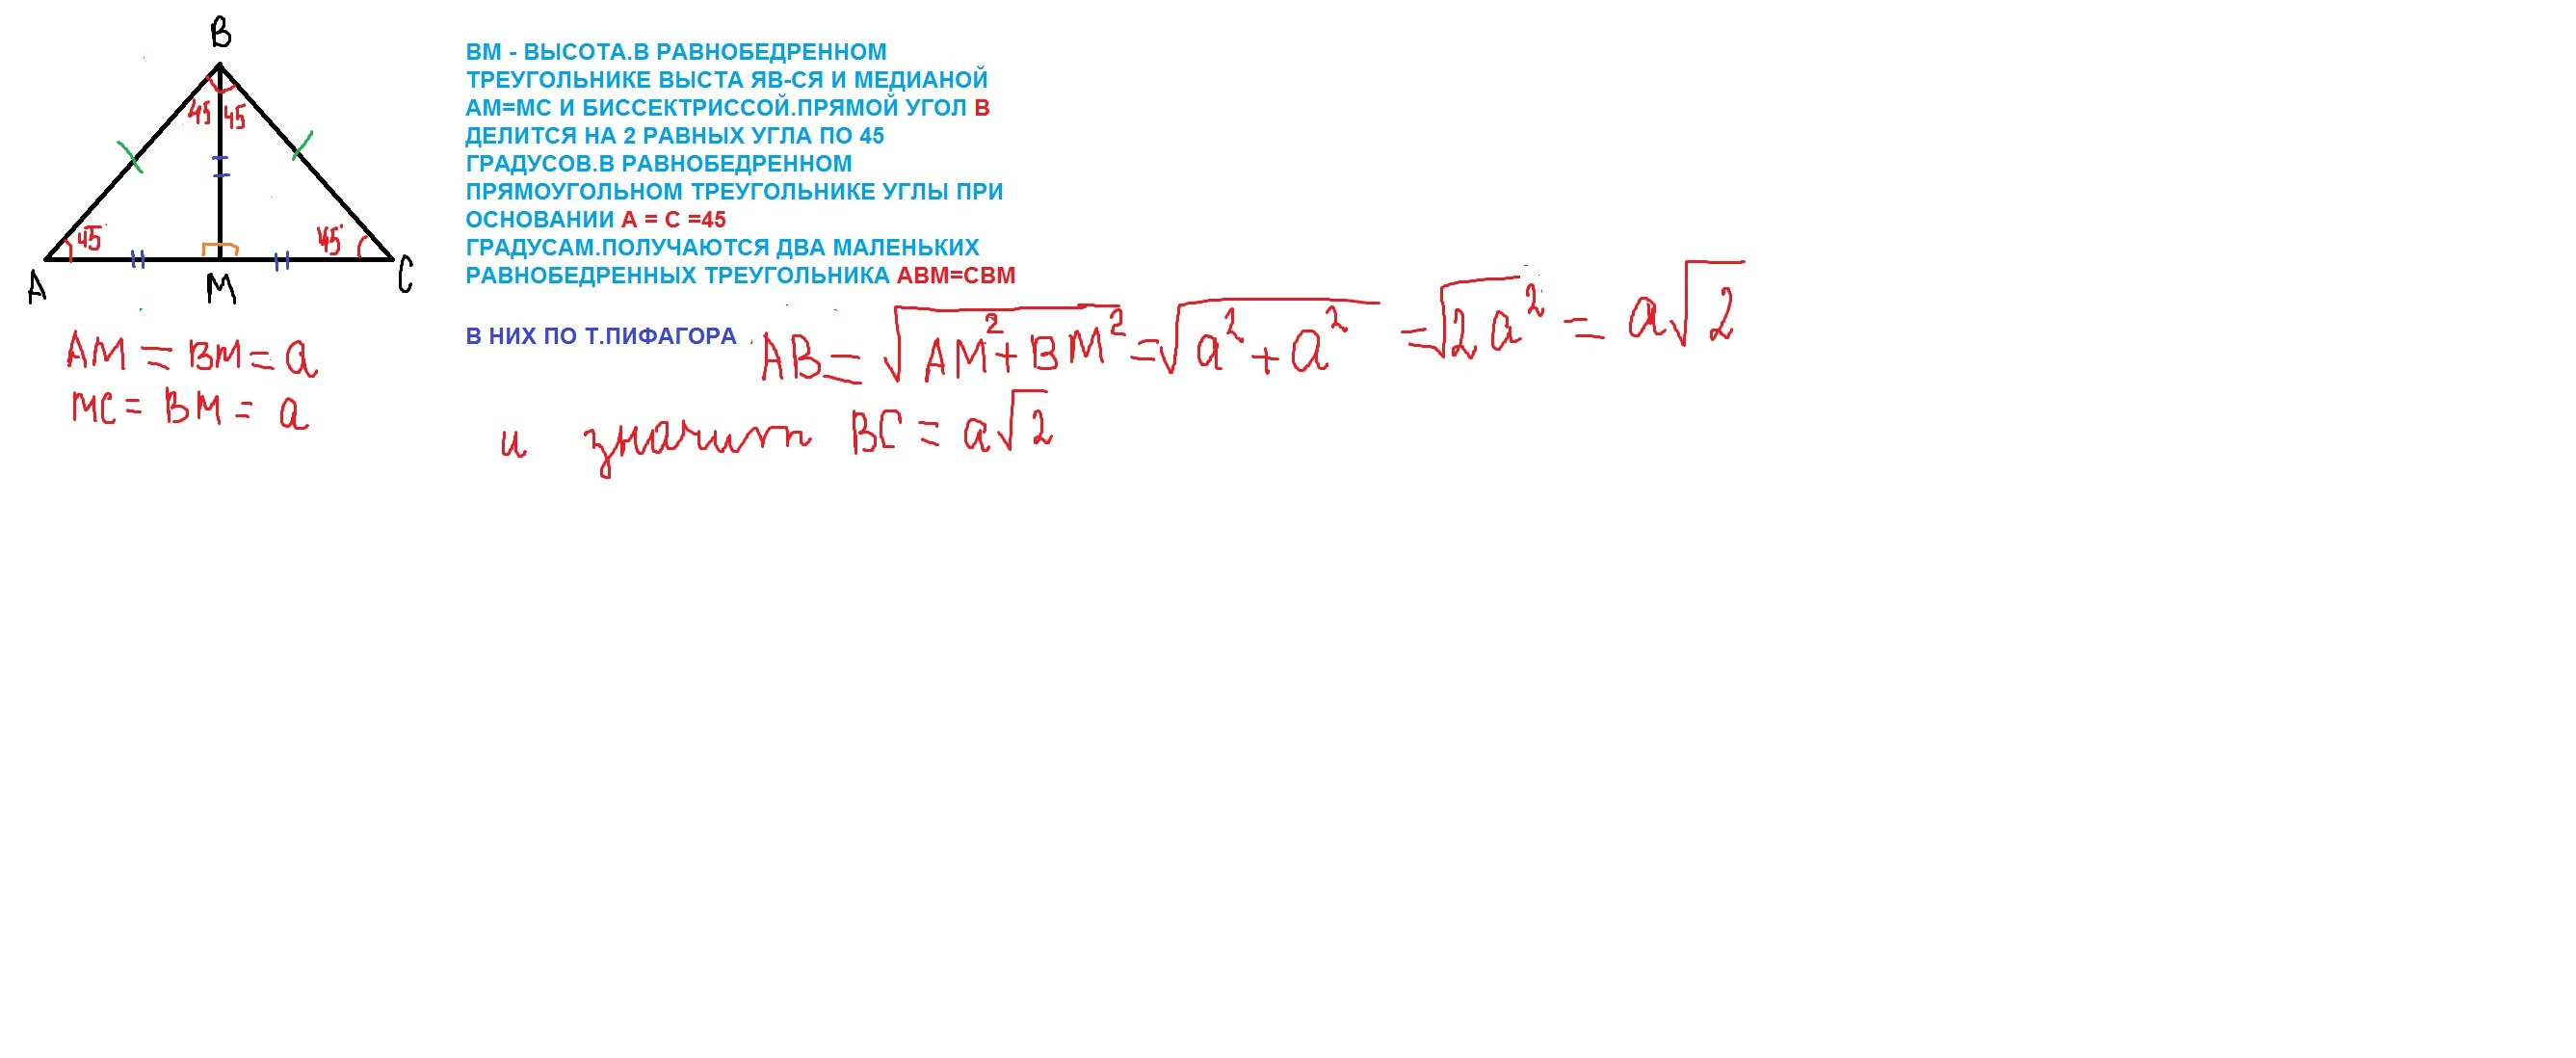 B
45 45
45 45
A M C
ВМ - ВЫСОТА.В РАВНОБЕДРЕННОМ
ТРЕУГОЛЬНИКЕ ВЫСТА ЯВ-СЯ И МЕДИАНОЙ
АМ=МС И БИССЕКТРИССОЙ.ПРЯМОЙ УГОЛ В
ДЕЛИТСЯ НА 2 РАВНЫХ УГЛА ПО 45
ГРАДУСОВ.В РАВНОБЕДРЕННОМ
ПРЯМОУГОЛЬНОМ ТРЕУГОЛЬНИКЕ УГЛЫ ПРИ
ОСНОВАНИИ А = С =45
ГРАДУСАМ.ПОЛУЧАЮТСЯ ДВА МАЛЕНЬКИХ
РАВНОБЕДРЕННЫХ ТРЕУГОЛЬНИКА АВМ=СВМ
AM = BM = a
MC = BM = a
В НИХ ПО Т.ПИФАГОРА AB = √(AM²+BM²) = √(a²+a²) = √(2a²) = a√2
и значит BC = a√2